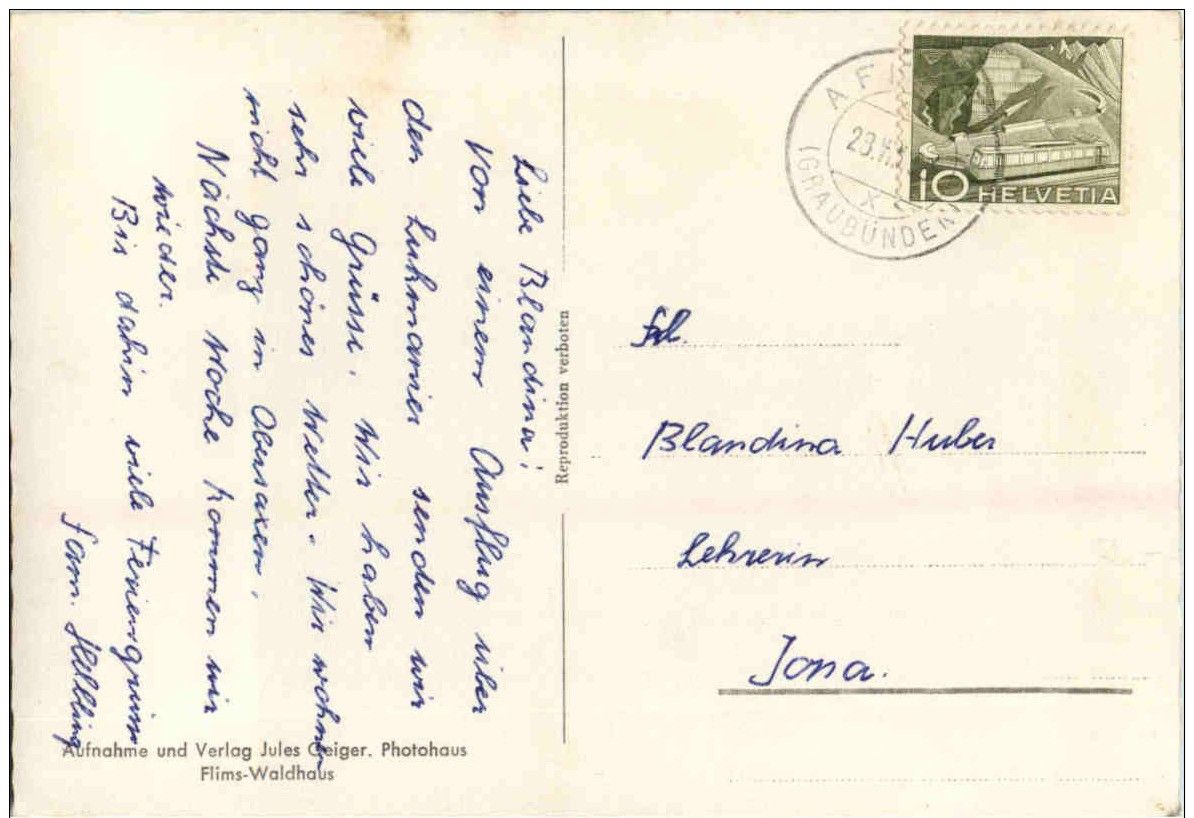 Liebe Blandina!
Von einem Ausflug über
den Lukmanier senden wir
viele Grüsse. Wir haben
sehr schönes Wetter. Wir wohnen
nicht ganz in Obersaxen.
Nächste Woche kommen wir
wieder.
Bis dahin viele Feriengrüsse
Fam. Helbling
Reproduktion verboten
Aufnahme und Verlag Jules Geiger. Photohaus
Flims-Waldhaus
(GRAUBÜNDEN)
10 HELVETIA
Frl.
Blandina Huber
Lehrerin
Jona.